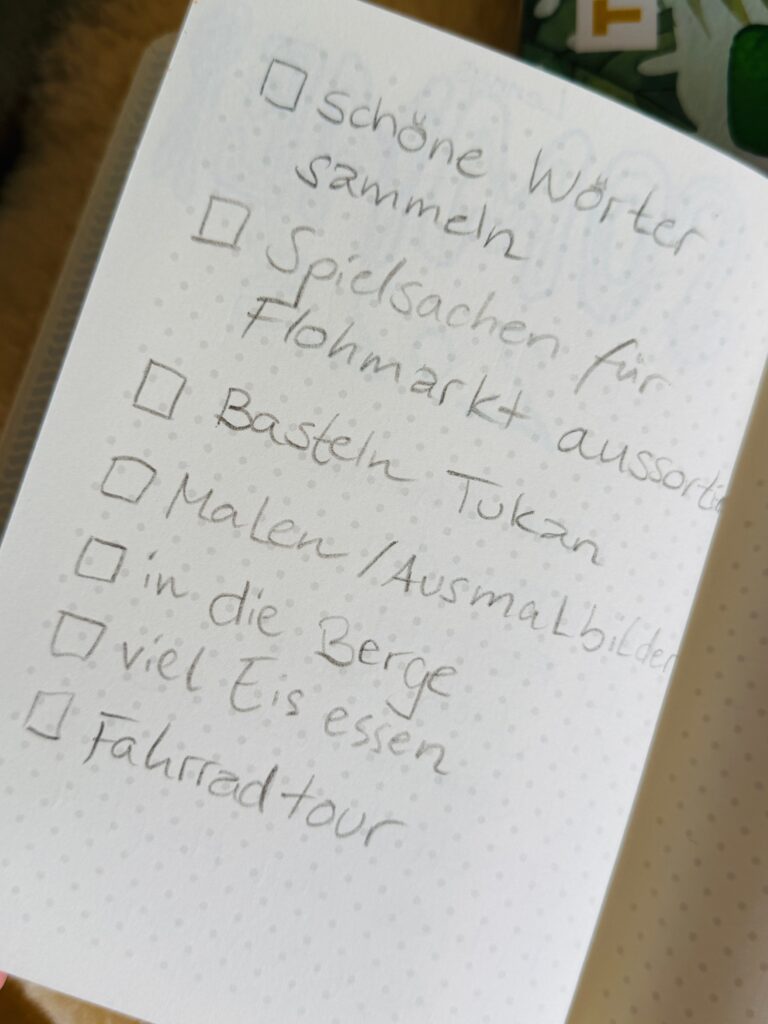 T
schöne Wörter
sammeln
Spielsachen für
Flohmarkt
Basteln Tukan
Malen / Ausmalbilder
in die Berge
viel Eis essen
Fahrradtour